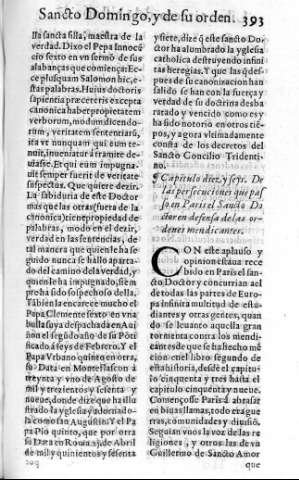 Sancto Domingo, y de su orden. 393
lla sancta silla, maestra de la
verdad. Dixo el Papa Innocẽ
cio sexto en vn sermõ de sus
alabanças que comença: Ec-
ce plusquam Salomon hic, e-
stas palabras. Huius doctoris
sapientia præ cæteris excepta
canonica habet proprietatem
verborum, modum dicendo-
rum, veritatem sententiarũ,
ita vt nunquam qui eum te-
nuit, inueniatur à tramite de-
uiasse. Et qui eam impugna-
uit semper fuerit de veritate
suspectus. Que quiere dezir.
La sabiduria de este Doctor
mas que las otras (fuera de la
canonica) tiene propiedad de
palabras, modo en el dezir,
verdad en las sentencias, de
tal manera que quien la he se-
guido nunca se hallo aparta-
do del camino de la verdad, y
quien la ha impugnado, siem
pre ha sido sospechoso della.
Tãbien la encarece mucho el
Papa Clemente sexto en vna
bulla suya despachada en Aui
ñon el segũdo año de su Põti
ficado à seys de Febrero. Y el
Papa Vrbano quinto en otra,
su Data en Monteflascon à
treynta y vno de Agosto de
mil y trezientos y sesenta y
nueue, donde dize que ha illu
strado la yglesia y adornado-
la como san Augustin. Y el Pa
pa Pio quinto, que por otra
su Data en Roma à de Abril
de mil y quinientos y sesenta
y siete, dize q̃ este sancto Do-
ctor ha alombrado la yglesia
catholica destruyendo infini
tas heregias. Y que las q̃ des-
pues de su canonizacion han
salido se han con la fuerça y
verdad de su doctrina desba
ratado y vencido como es y
ha sido notorio en otros tiẽ-
pos, y agora vltimadamente
consta de los decretos del
Sancto Concilio Tridenti-
no.
¶ Capitulo diez, y seys. De
las persecuciones que pas
so en Paris el Sancto Do
ctor en defensa de las or-
denes mendicantes.
CON este aplauso y
opinion estaua rece
bido en Paris el san
cto Doctor y concurrian a el
de todas las partes de Euro-
pa infinita multitud de estu-
diantes y otras gentes, quan
do se leuanto aquella gran
tormenta contra los mendi-
cantes de que se ha hecho mẽ
cion en el libro segundo de
esta historia, desde el capitu-
lo cinquenta y tres hasta el
capitulo cinquenta y nueue.
Començosse Paris à abrasar
en biuas llamas, todo era que
rras, comunidades y diuisiõ.
Seguian vnos la voz de las re
ligiones, y otros las de vn
Guillermo de Sancto Amor
que